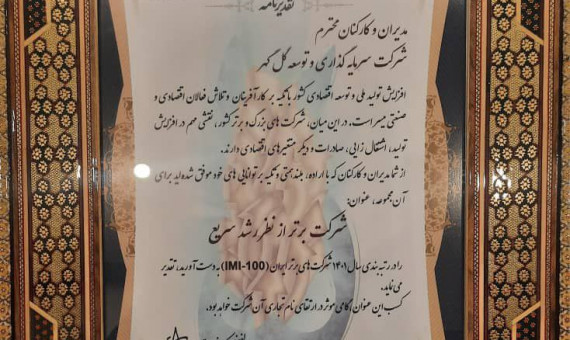 تقدیرنامه
مدیران و کارکنان محترم
شرکت سرمایه گذاری و توسعه گل گهر
افزایش تولید ملی و توسعه اقتصادی کشور با تکیه بر کارآفرینان و تلاش فعالان اقتصادی و
صنعتی میسر است. در این میان، شرکت های بزرگ و برتر کشور، نقشی مهم در افزایش
تولید، اشتغال زایی، صادرات و دیگر متغیرهای اقتصادی دارند.
از شما مدیران و کارکنان که با اراده، بلند همتی و تکیه بر توانایی های خود موفق شده اید برای
آن مجموعه، عنوان:
شرکت برتر از نظر رشد سریع
را در رتبه بندی سال ۱۴۰۱ شرکت های برتر ایران (IMI-100) به دست آورید، تقدیر
می نماید.
کسب این عنوان، گامی موثر در ارتقای نام تجاری آن شرکت خواهد بود.